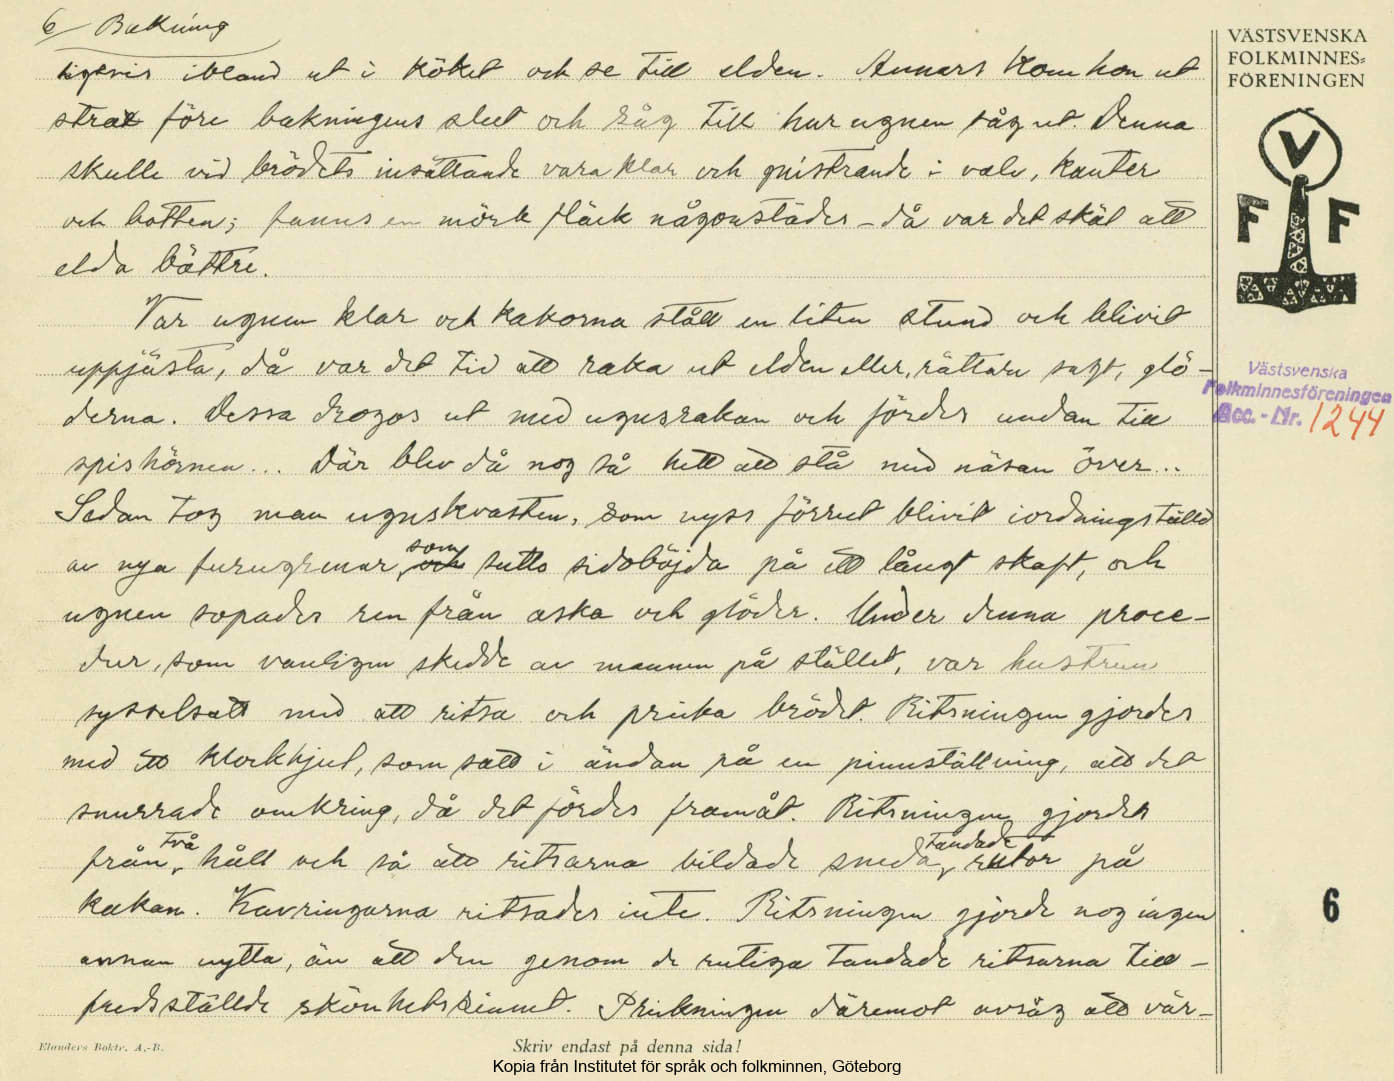 6 Bakning
tigtvis ibland ut i köket och se till elden. Annars kom hon ut
strax före bakningens slut och såg till hur ugnen såg ut. Denna
skulle vid brödets insättande vara klar och gnistrande i valv, kanter
och botten; fanns en mörk fläck någonstädes – då var det skäl att
elda bättre.
Var ugnen klar och kakorna stått en liten stund och blivit
uppjästa, då var det tid att raka ut elden eller, rättare sagt, glö-
derna. Dessa drogos ut med ugnsrakan och fördes undan till
spishörnen... Där blev då nog så hett att stå med näsan över...
Sedan tog man ugnskvasten, som nyss förrut blivit iordningställd
av nya furugrenar, som sutto sidoböjda på ett långt skaft, och
ugnen sopades ren från aska och glöder. Under denna proce-
dur, som vanligen skedde av mannen på stället, var hustrun
sysselsatt med att ritsa och pricka brödet. Ritsningen gjordes
med ett klockhjul, som satt i ändan på en pinnställning, att det
snurrade omkring, då det fördes framåt. Ritsningen gjordes
från två håll och så att ritsarna bildade sneda, tandade rutor på
kakan. Kavringarna ritsades inte. Ritsningen gjorde nog ingen
annan nytta, än att den genom de rutiga tandade ritsarna till-
fredsställde skönhetssinnet. Prickningen däremot avsåg att vär-
VÄSTSVENSKA
FOLKMINNES-
FÖRENINGEN
V
F F
Västsvenska
Folkminnesföreningen
Acc. - Nr. 1244
6
Elanders Boktr. A.-B.
Skriv endast på denna sida!
Kopia från Institutet för språk och folkminnen, Göteborg